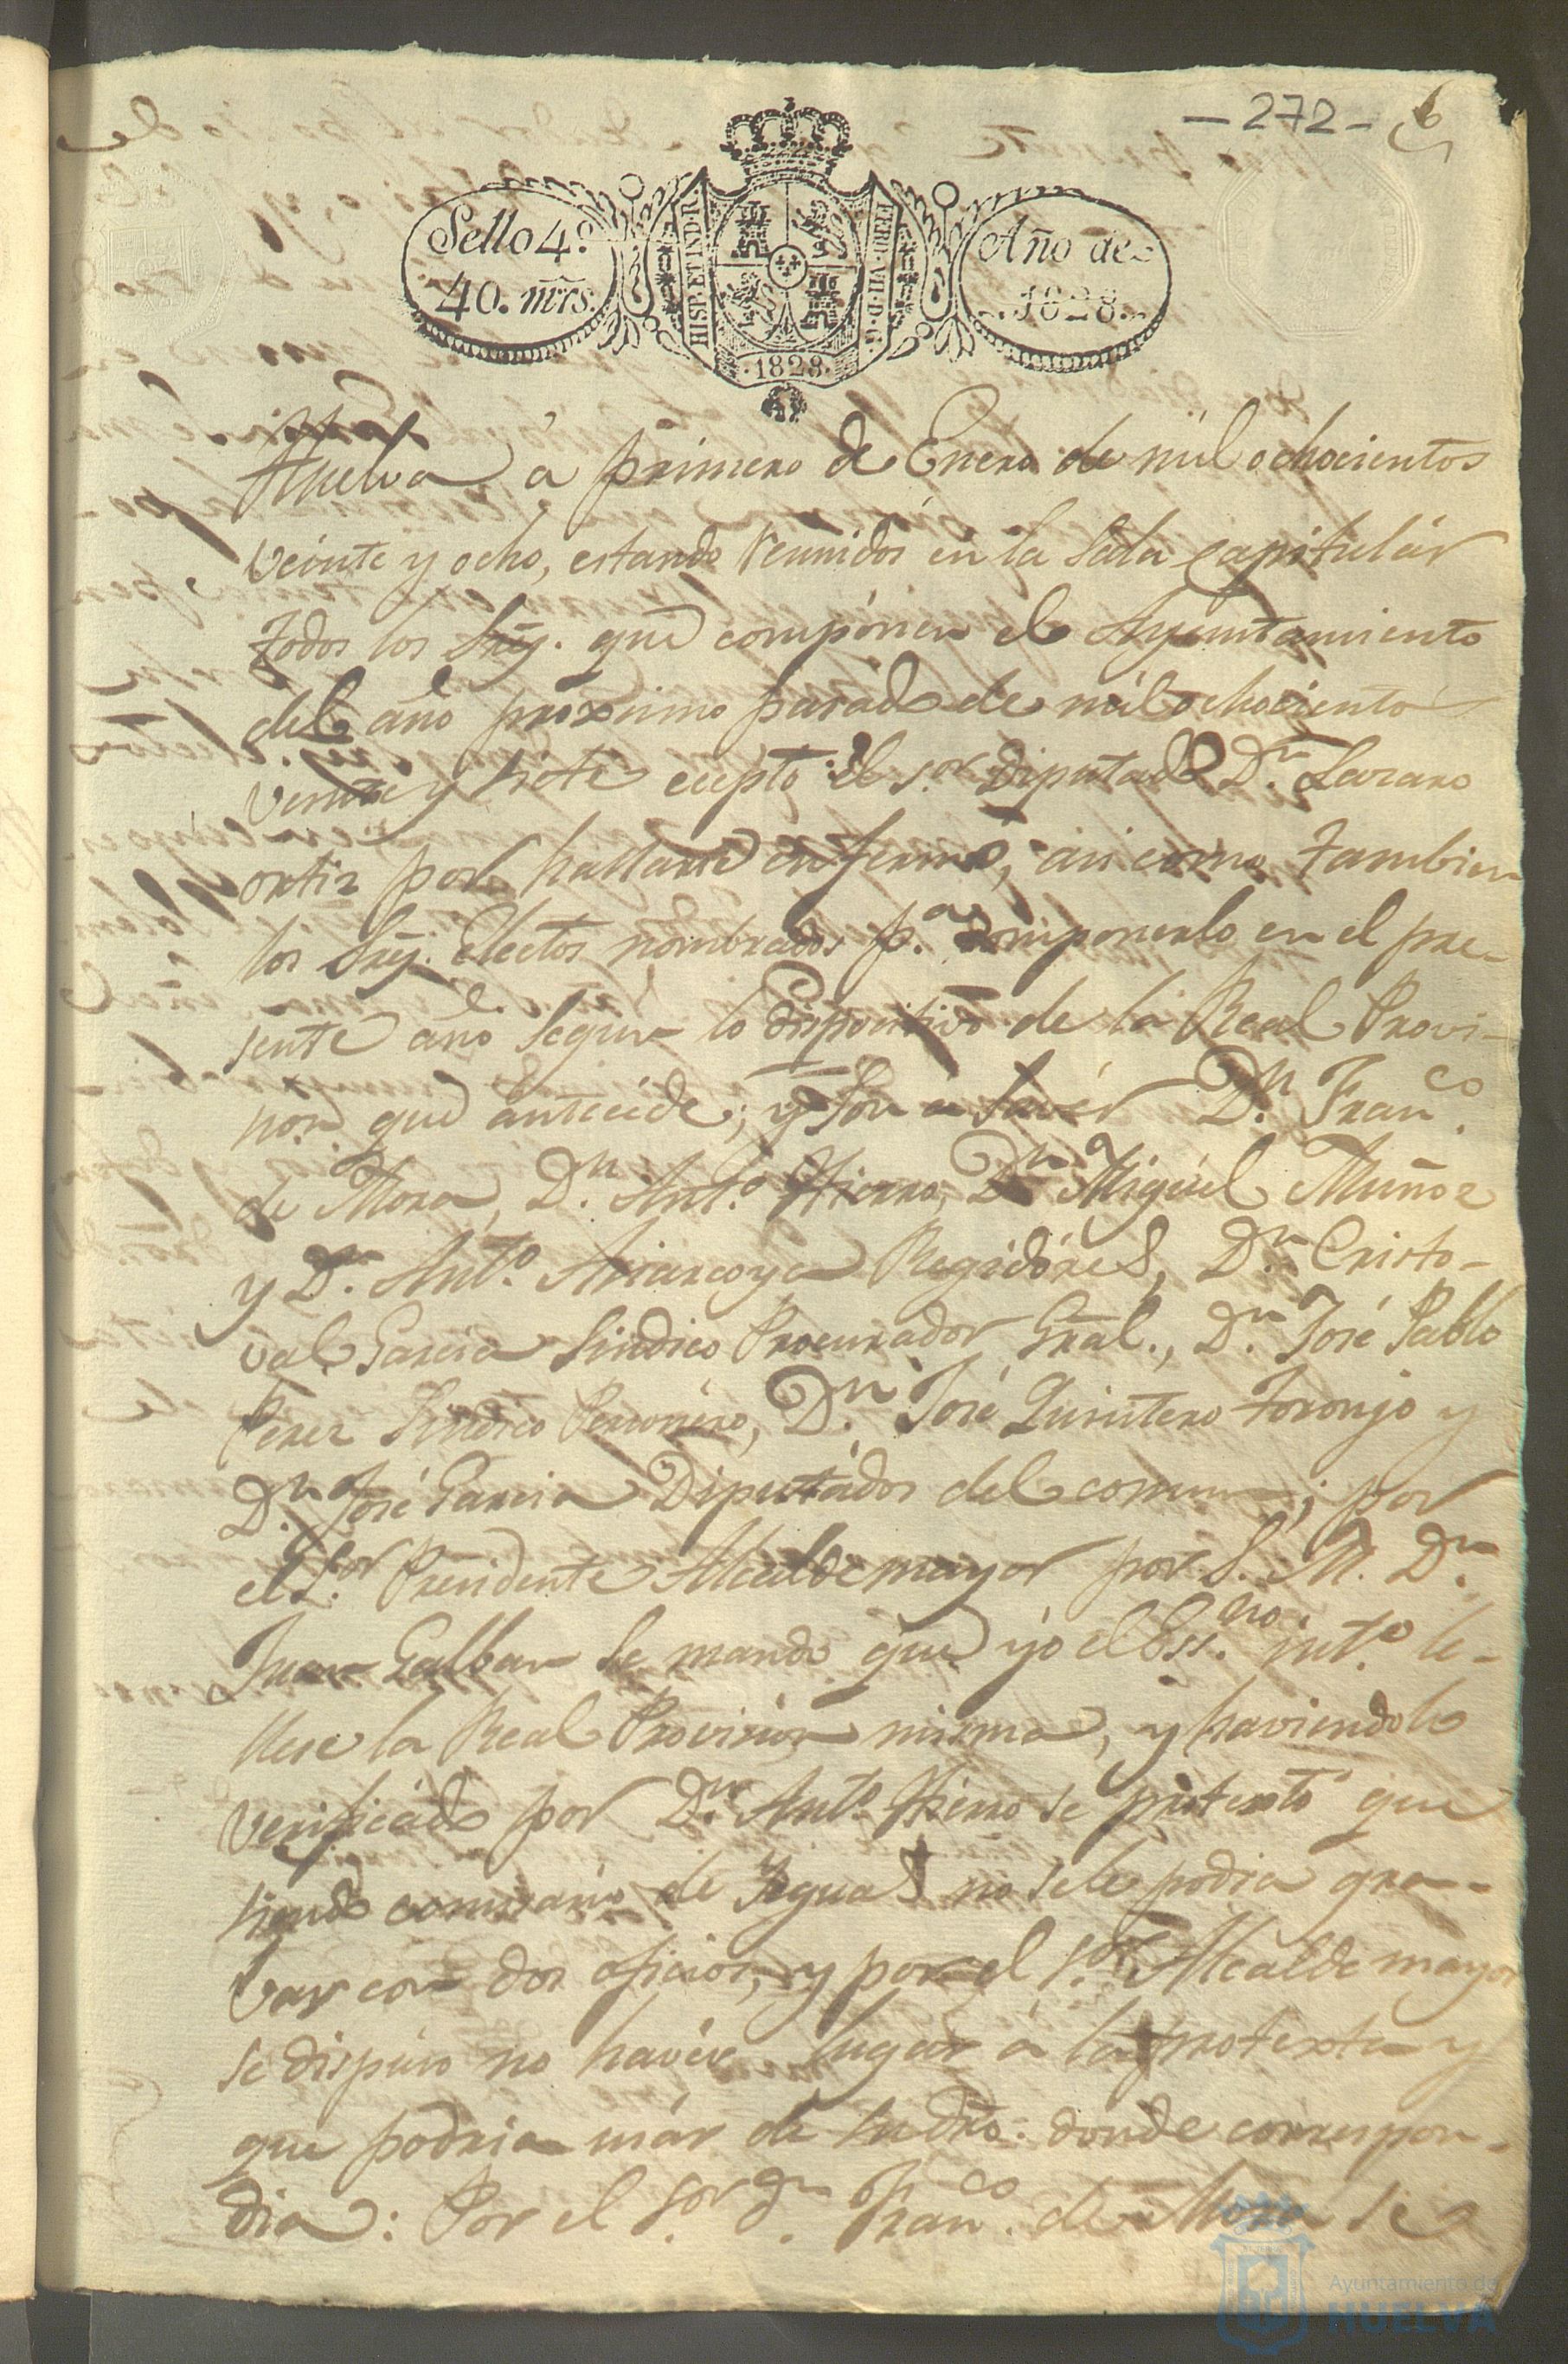 - 272 -
6
Sello 4.º
40. mrs.
HISP. ET IND. R.
FERD. VII. D. G.
Año de
1828.
.1828.
Huelva à primero de Enero de mil ochocientos
veinte y ocho, estando reunidos en la Sala Capitulár
todos los Srẽs. que compónen el Ayuntamiento
del año próximo pasado de mil ochocientos
veinte y siete ecepto el s.or Diputado D.n Lazaro
ortiz por hallarse enfermo, asi como tambien
los Srẽs. electos nombrados p.a componerlo en el pre-
sente año segun lo dispositivo de la Real Provi-
non que antecéde; y son a savér D.n Fran.co
de Mora, D.n Ant.o Hierro, D.n Miguél Muñoz
y D.n Ant.o Regidóres, D.n Cristo-
val Garcia Sindico Procurador Grãl., D.n José Pablo
Perez Sindico Personéro, D.n José Quintero Toronjo y
D.n José Garcia Diputádos del comun; por
el S.or Presidente Alcalde mayor por S. M. D.n
Juan Galban se mando que yo el Ess.no int.o le-
llese la Real Provision misma, y haviendolo
verificado por D.n Ant.o Hierro se protextó que
siendo comisario de Yeguas no sele podia gra-
var con dos oficios, y por el S.or Alcalde mayor
se dispuso no havér lugar á la protexta y
que podria usár de su dro. donde correspon-
dia: Por el S.or D.n Fran.co de Mora se
Ayuntamiento de
HUELVA